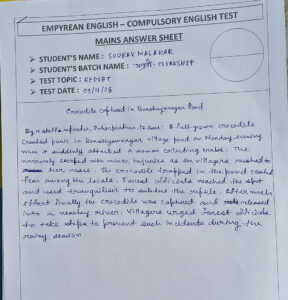 EMPYREAN ENGLISH – COMPULSORY ENGLISH TEST
MAINS ANSWER SHEET
➤ STUDENT'S NAME : SOURAV MALAKAR
➤ STUDENT'S BATCH NAME : - CLERKSHIP
➤ TEST TOPIC : REPORT
➤ TEST DATE :
Crocodile captured in Pond
By a staff reporter, June : A full grown crocodile
created panic in village pond on Monday evening
when it suddenly attacked a woman collecting crabs. She
narrowly escaped with minor injuries as the villagers rushed to
her rescue. The crocodile trapped in the pond created
fear among the locals. Forest officials reached the spot
and used tranquiliser to subdue the reptile. After much
effort finally the crocodile was captured and released
into a nearby river. Villagers urged Forest officials
to take steps to prevent such incidents during the
rainy season.